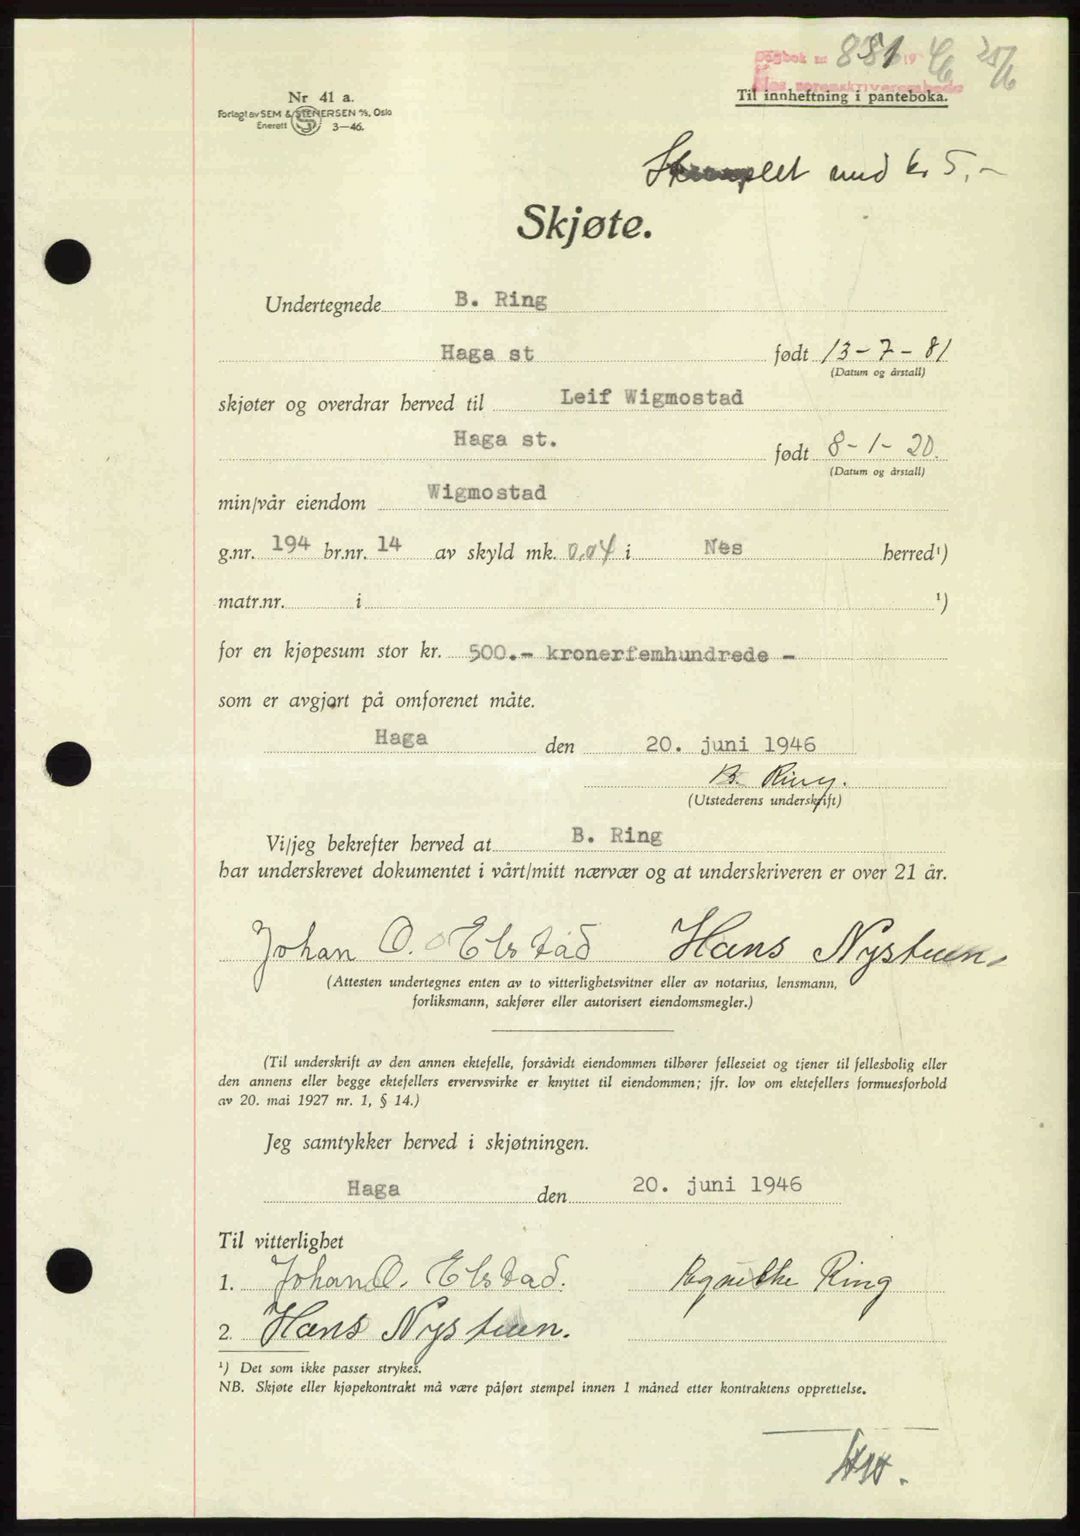 Dagbok nr 881 1946 25/6
Nes sorenskriverembede
Nr 41 a.
Forlagt av SEM & STENERSEN A/S, Oslo
Enerett 3-46.
Til innheftning i panteboka.
Stemplet med kr 5,-
Skjøte.
Undertegnede B. Ring
Haga st født 13-7-81
(Datum og årstall)
skjøter og overdrar herved til Leif Wigmostad
Haga st. født 8-1-20.
(Datum og årstall)
min/vår eiendom Wigmostad
g.nr. 194 br.nr. 14 av skyld mk. 0,04 i Nes herred¹)
matr.nr. i ¹)
for en kjøpesum stor kr. 500.- kronerfemhundrede -
som er avgjort på omforenet måte.
Haga den 20. juni 1946
B. Ring.
(Utstederens underskrift)
Vi/jeg bekrefter herved at B. Ring
har underskrevet dokumentet i vårt/mitt nærvær og at underskriveren er over 21 år.
Johan O. Elstad Hans Nystuen.
(Attesten undertegnes enten av to vitterlighetsvitner eller av notarius, lensmann,
forliksmann, sakfører eller autorisert eiendomsmegler.)
(Til underskrift av den annen ektefelle, forsåvidt eiendommen tilhører felleseiet og tjener til fellesbolig eller
den annens eller begge ektefellers ervervsvirke er knyttet til eiendommen; jfr. lov om ektefellers formuesforhold
av 20. mai 1927 nr. 1, § 14.)
Jeg samtykker herved i skjøtningen.
Haga den 20. juni 1946
Til vitterlighet
1. Johan O. Elstad. Agnethe Ring
2. Hans Nystuen.
¹) Det som ikke passer strykes.
NB. Skjøte eller kjøpekontrakt må være påført stempel innen 1 måned etter kontraktens opprettelse.